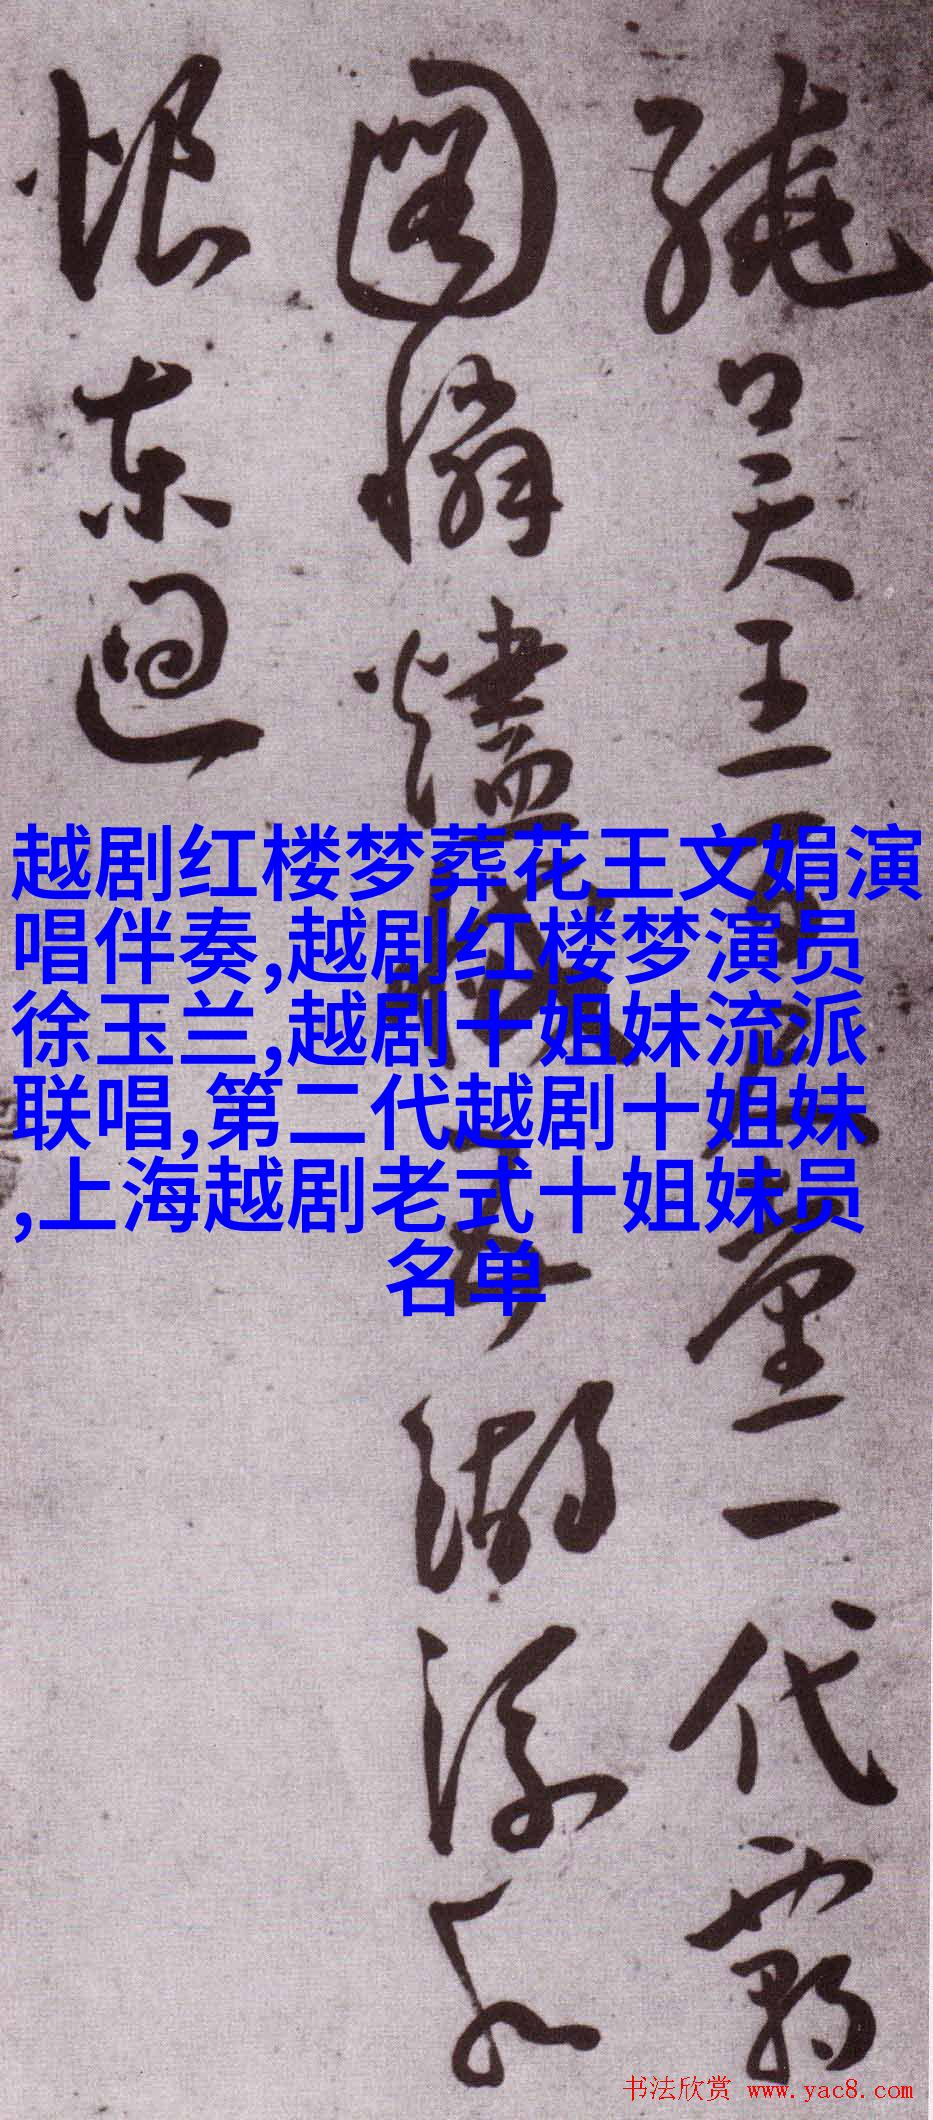 吴天王臺一代霸
圖憐燼湖深不
恨東迴
越剧红楼梦葬花王文娟演
唱伴奏,越剧红楼梦演员
徐玉兰,越剧十姐妹流派
联唱,第二代越剧十姐妹
,上海越剧老式十姐妹员
名单
书法欣赏 www.yac8.com